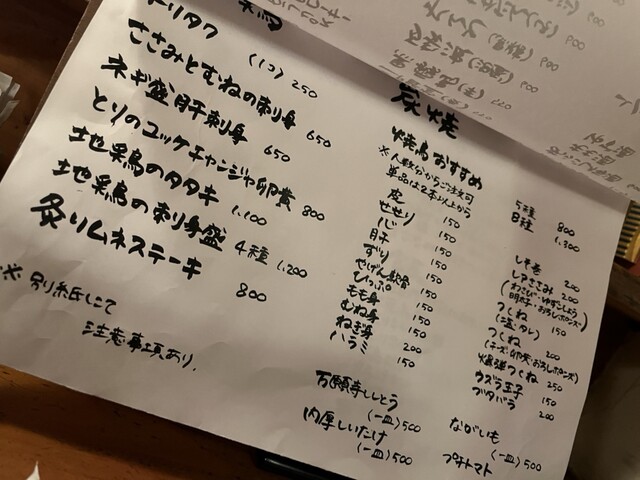 トリタク (1コ) 250
ささみとむねの刺身 650
ネギ盛肝刺身 650
とりのユッケチャンジャ卵黄 800
地果鳥のタタキ 1.100
地果鳥の刺身盛 4種 1.200
炙りムネステーキ 800
※別紙にて
注意事項あり.
炭焼
焼鳥おすすめ 5種 800
※人数分からご注文可 8種 1.300
単品は2本以上から
皮 150
せせり 150
ハツ 150
肝 150
ずり 150
やげん軟骨 150
ひっぷ 150
もも身 150
むね身 150
ねぎ身 200
ハラミ 150
しそ巻 200
しそささみ 200
(わさび・ゆずこしょう
明太子・おろしポンズ)
つくね 150
(塩・タレ)
つくね 200
(チーズ・卵黄・おろしポンズ)
爆弾つくね 250
ウズラ玉子 150
ブタバラ 200
万願寺ししとう
(一皿)500
肉厚しいたけ
(一皿)500
ながいも
(一皿)500
プチトマト